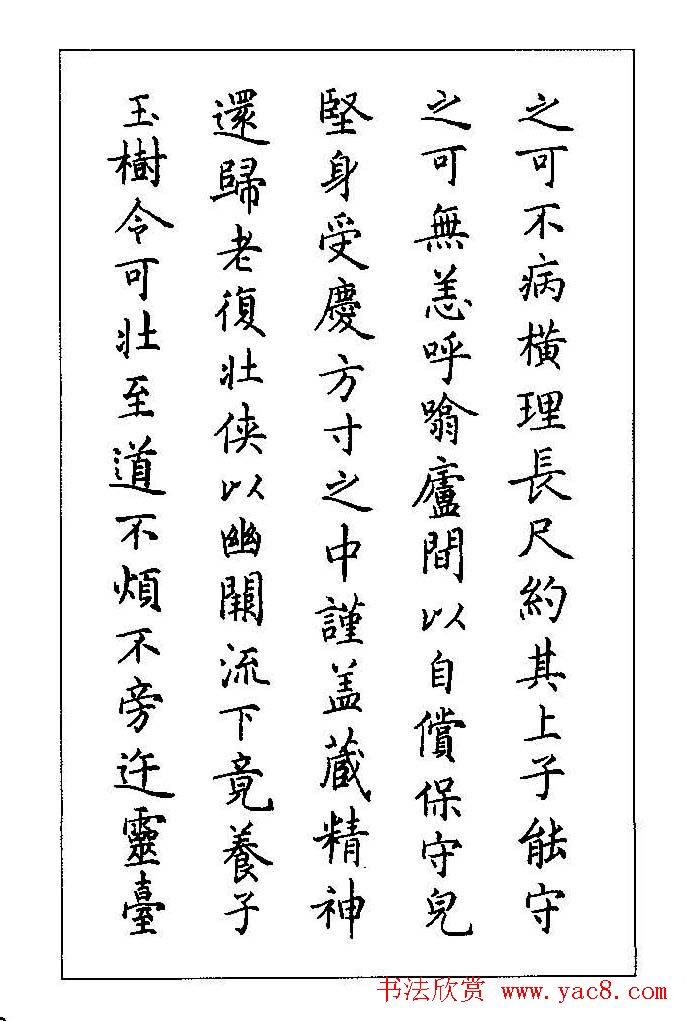 之可不病橫理長尺約其上子能守
之可無恙呼噏廬間以自償保守皃
堅身受慶方寸之中謹盖藏精神
還歸老復壯俠以幽闕流下竟養子
玉樹令可壯至道不煩不旁迕靈臺
书法欣赏 www.yac8.com